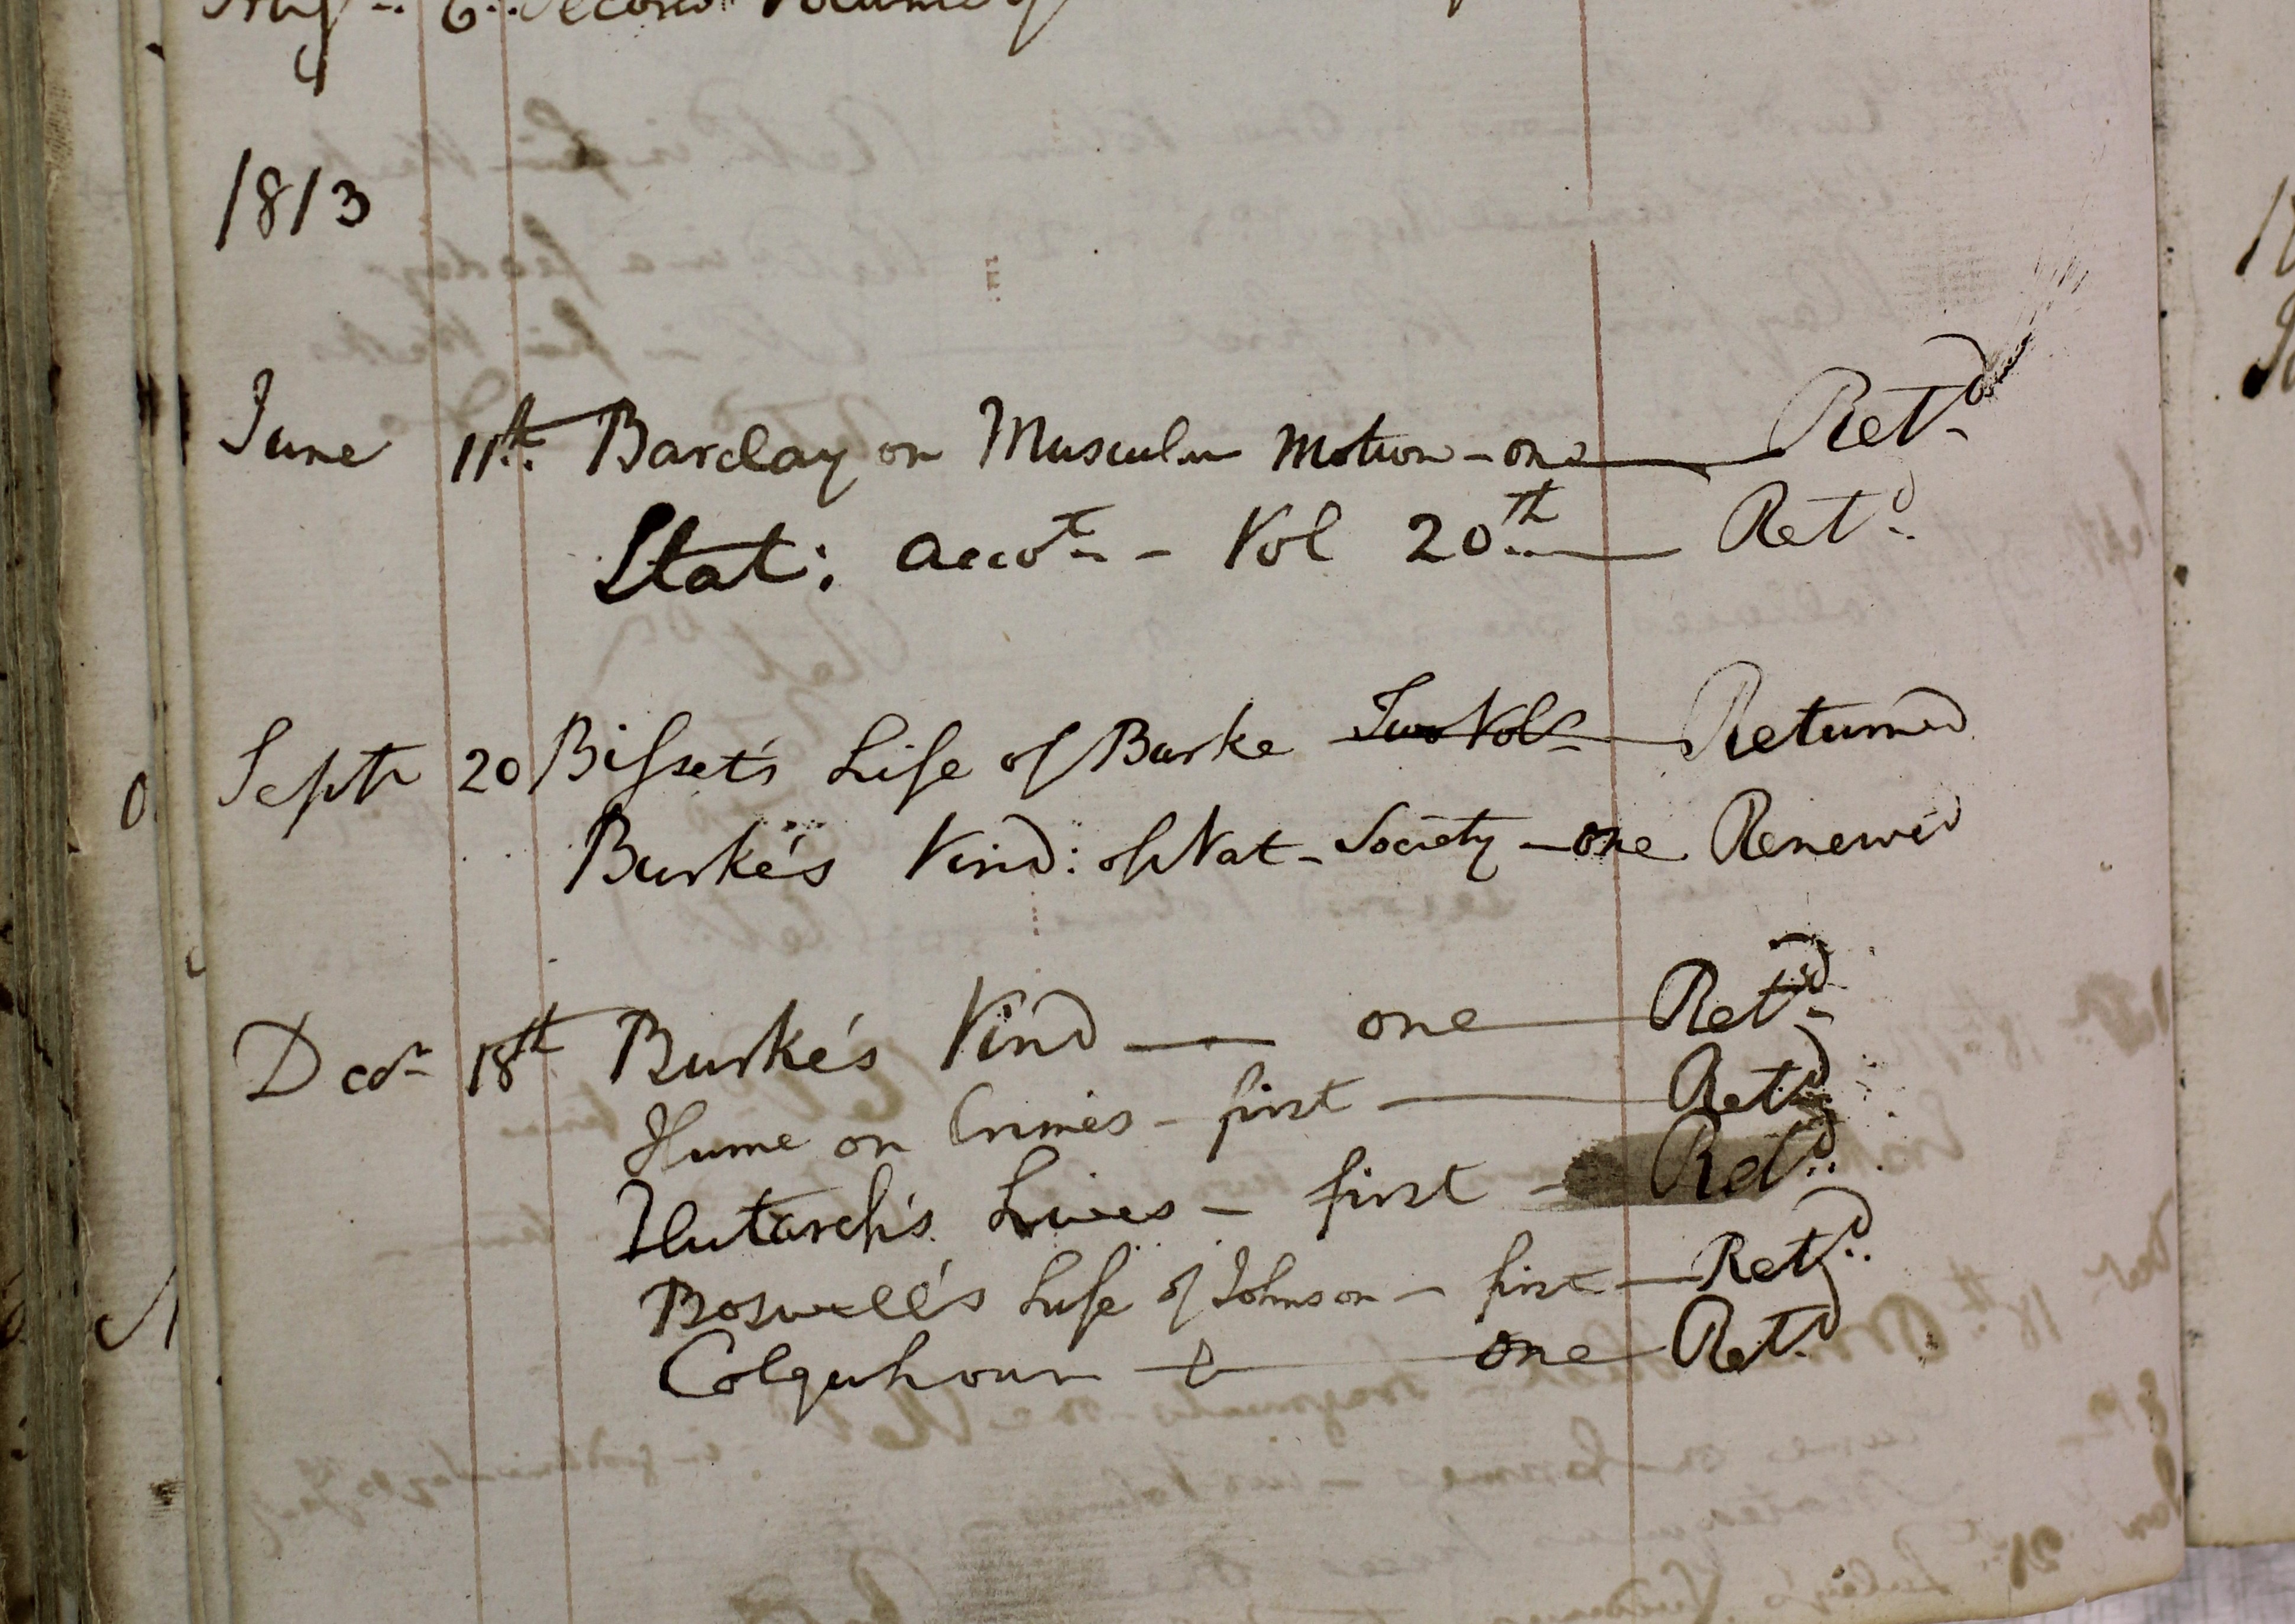 6.. Second Volume of
1813
June 11th Barclay on Muscular Motion - one Retd
Stat: accot - Vol 20th Retd
Septr 20 Bisset's Life of Burke Two Vols Returned
Burke's Vind: of Nat - Society - one Renewed
Decr 18th Burke's Vind — one Retd
Hume on Crimes - first — Retd
Plutarch's Lives - first - Retd
Boswell's Life of Johnson - first - Retd
Colquhoun — one Retd